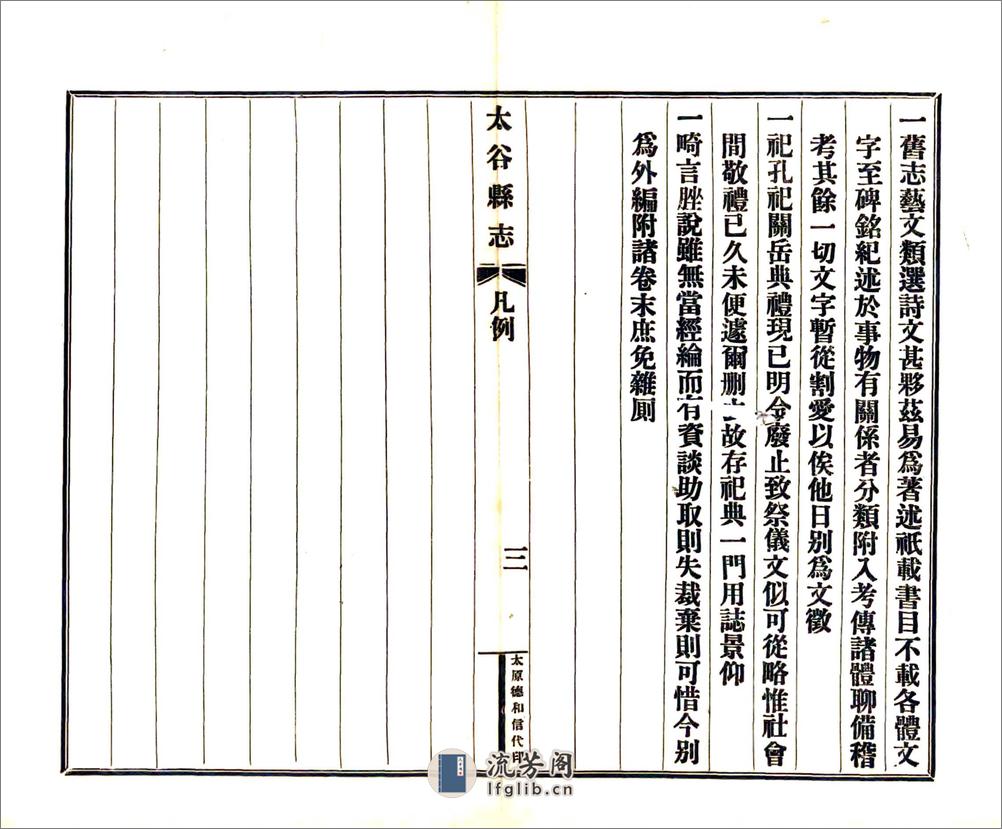 一舊志藝文類選詩文甚夥茲易爲著述祇載書目不載各體文
字至碑銘紀述於事物有關係者分類附入考傳諸體聊備稽
考其餘一切文字暫從割愛以俟他日别爲文徵
一祀孔祀關岳典禮現已明令廢止致祭儀文似可從略惟社會
間敬禮已久未便遽爾删 故存祀典一門用誌景仰
一畸言脞說雖無當經綸而有資談助取則失裁棄則可惜今别
爲外編附諸卷末庶免雜厠
太谷縣志
凡例
三
太原德和信代印
流芳阁
lfglib.cn